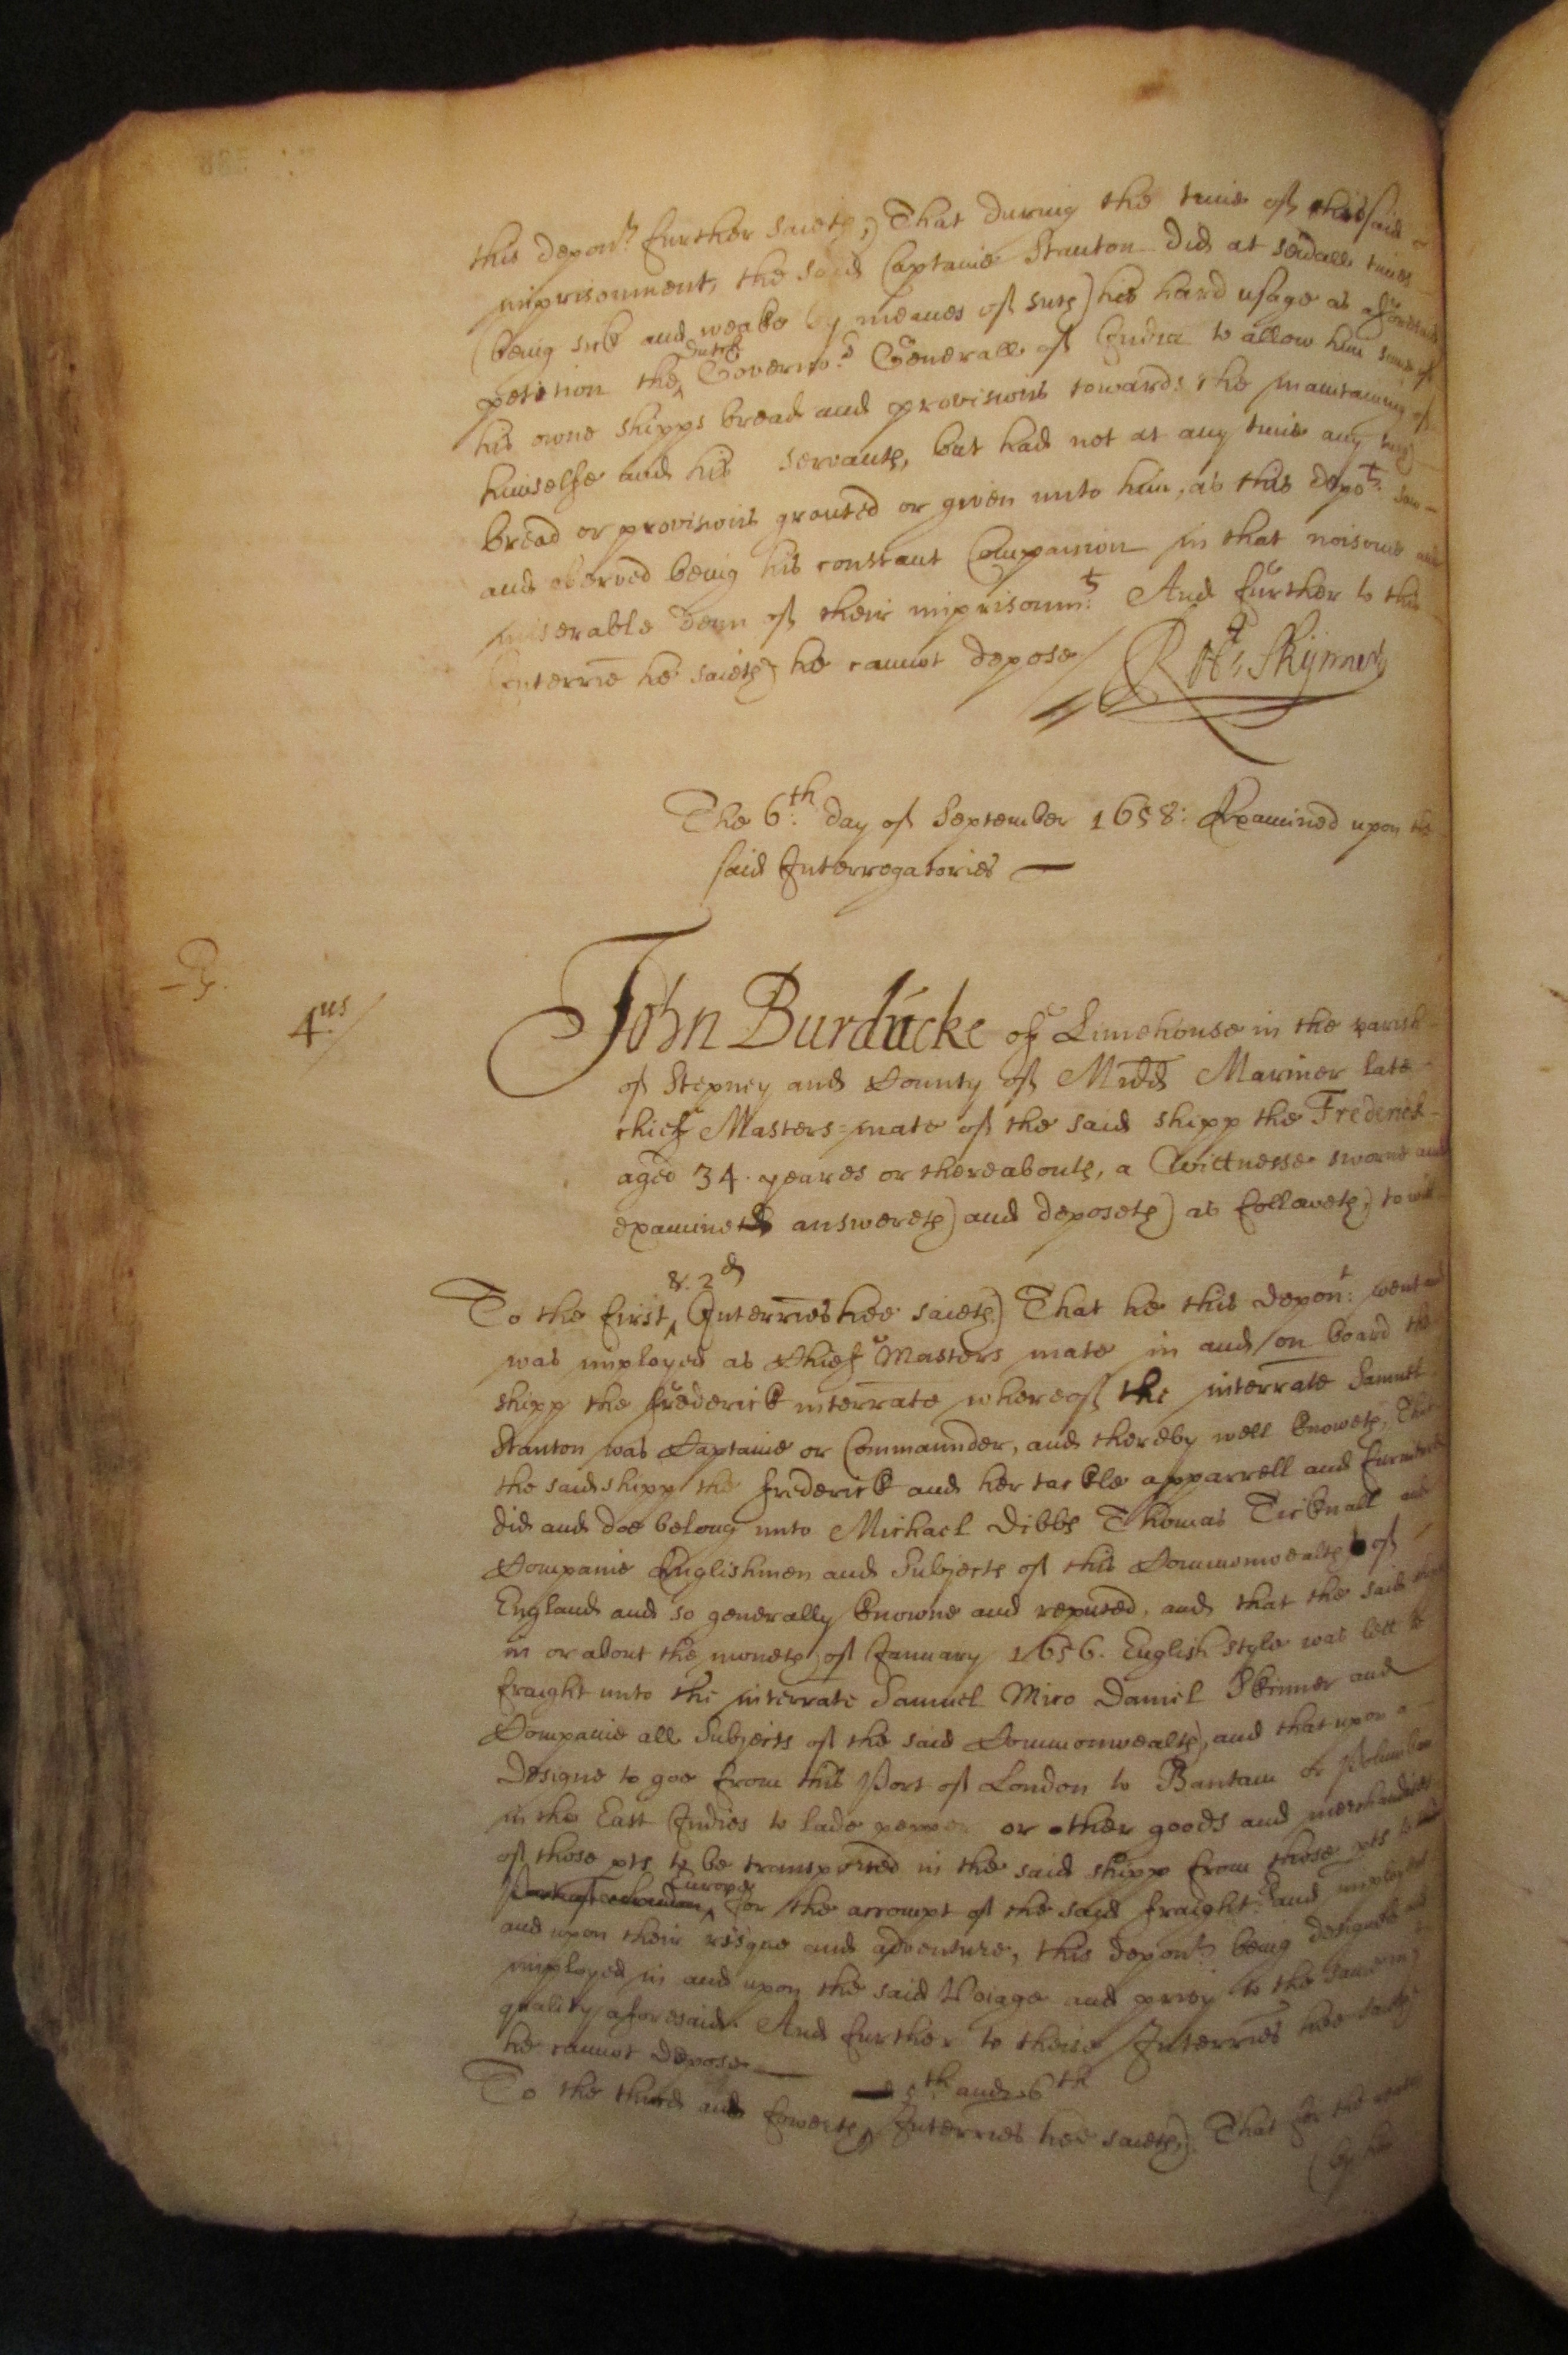 this depont further saieth, That during the time of this said
imprisonment, the said Captaine Stanton did at severall times
(being sick and weake by meanes of such his hard usage as aforesaid
petition the Dutch Governor Generall of India to allow him some of
his owne shipps bread and provisions towards the maintaining of
himselfe and his servants, but had not at any time any such
bread or provisions granted or given unto him, as this depot saw
and observed being his constant Companion in that noisome and
miserable denn of their imprisonmt. And further to this
Interrie he saieth he cannot depose/ Rt: Skÿnner
The 6th. day of September 1658: Examined upon the
said Interrogatories
4us/
John Burducke of Limehouse in the parish
of Stepney and County of Midd Mariner late
chief Masters-mate of the said shipp the Frederick
aged 34. yeares or thereabouts, a Wittnesse sworne and
examined answereth and deposeth as followeth, to wit
To the first &. 2d Interries hee saieth That he this depont: went and
was imployed as Chief Masters mate in and on board the
shipp the Frederick interrate whereof the interrate Samuel
Stanton was Captaine or Commaunder, and thereby well knoweth, That
the said shipp the Frederick and her tackle apparrell and furniture
did and doe belong unto Michael Dibbs Thomas Ticknall and
Companie Englishmen and Subjects of this Commonwealth of
England and so generally knowne and reputed, and that the said shipp
in or about the moneth of January 1656. English style was lett to
fraight unto the interrate Samuel Mico Daniel Skinner and
Companie all Subjects of the said Commonwealth, and that upon a
Designe to goe from this Port of London to Bantam or
in the East Indies to lade pepper or other goods and merchandizes
of those pts to be transported in the said shipp from those pts to
Port of London Europe for the accompt of the said fraighters and imployers
and upon their risque and adventure, this depont being designed and
imployed in and upon the said Voiage and privy to the same in
quality aforesaid. And further to theise Interries hee saith
he cannot depose
To the third and fowerth 5th. and 6th Interries hee saieth, That for the